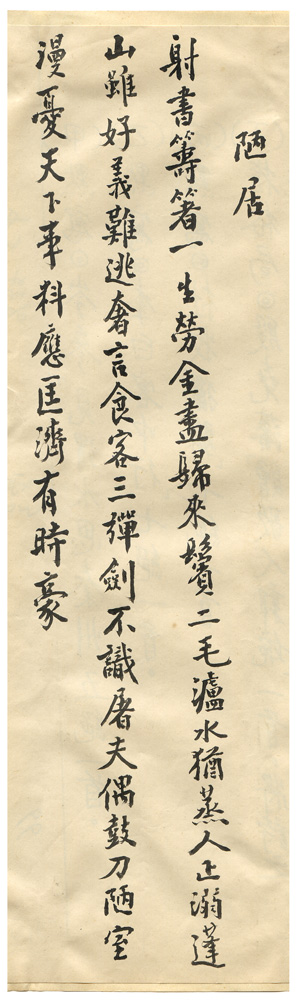 陋居
射書籌箸一生勞金盡歸來鬢二毛瀘水猶蒸人正溺蓬
山雖好義難逃奢言食客三彈劍不識屠夫偶鼓刀陋室
漫憂天下事料應匡濟有時豪